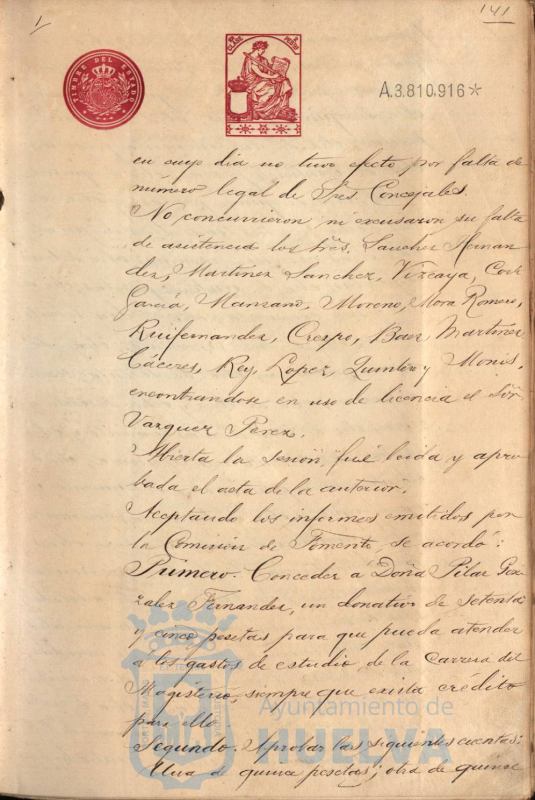 141
TIMBRE DEL ESTADO
A.3.810.916*
en cuyo dia no tuvo efecto por falta de
número legal de Sres Concejales.
No concurrieron ni excusaron su falta
de asistencia los Sres. Sanchez Hernan
dez, Martinez Sanchez, Vizcaya, Cort
García, Manzano, Moreno, Mora Romero,
Ruifernandez, Crespo, Baez, Martinez
Cáceres, Rey, Lopez, Quintero y Monis,
encontrandose en uso de licencia el Sñr
Vazquez Perez.
Abierta la sesión fué leida y apro
bada el acta de la anterior.
Aceptando los informes emitidos por
la Comisión de Fomento se acordó:
Primero. Conceder á Doña Pilar Gon
zalez Fernandez, un donativo de setenta
y cinco pesetas para que pueda atender
a los gastos de estudio de la Carrera del
Magisterio, siempre que exista crédito
para ello.
Segundo. Aprobar las siguientes cuentas:
Una de quince pesetas; otra de quince
Ayuntamiento de
HUELVA